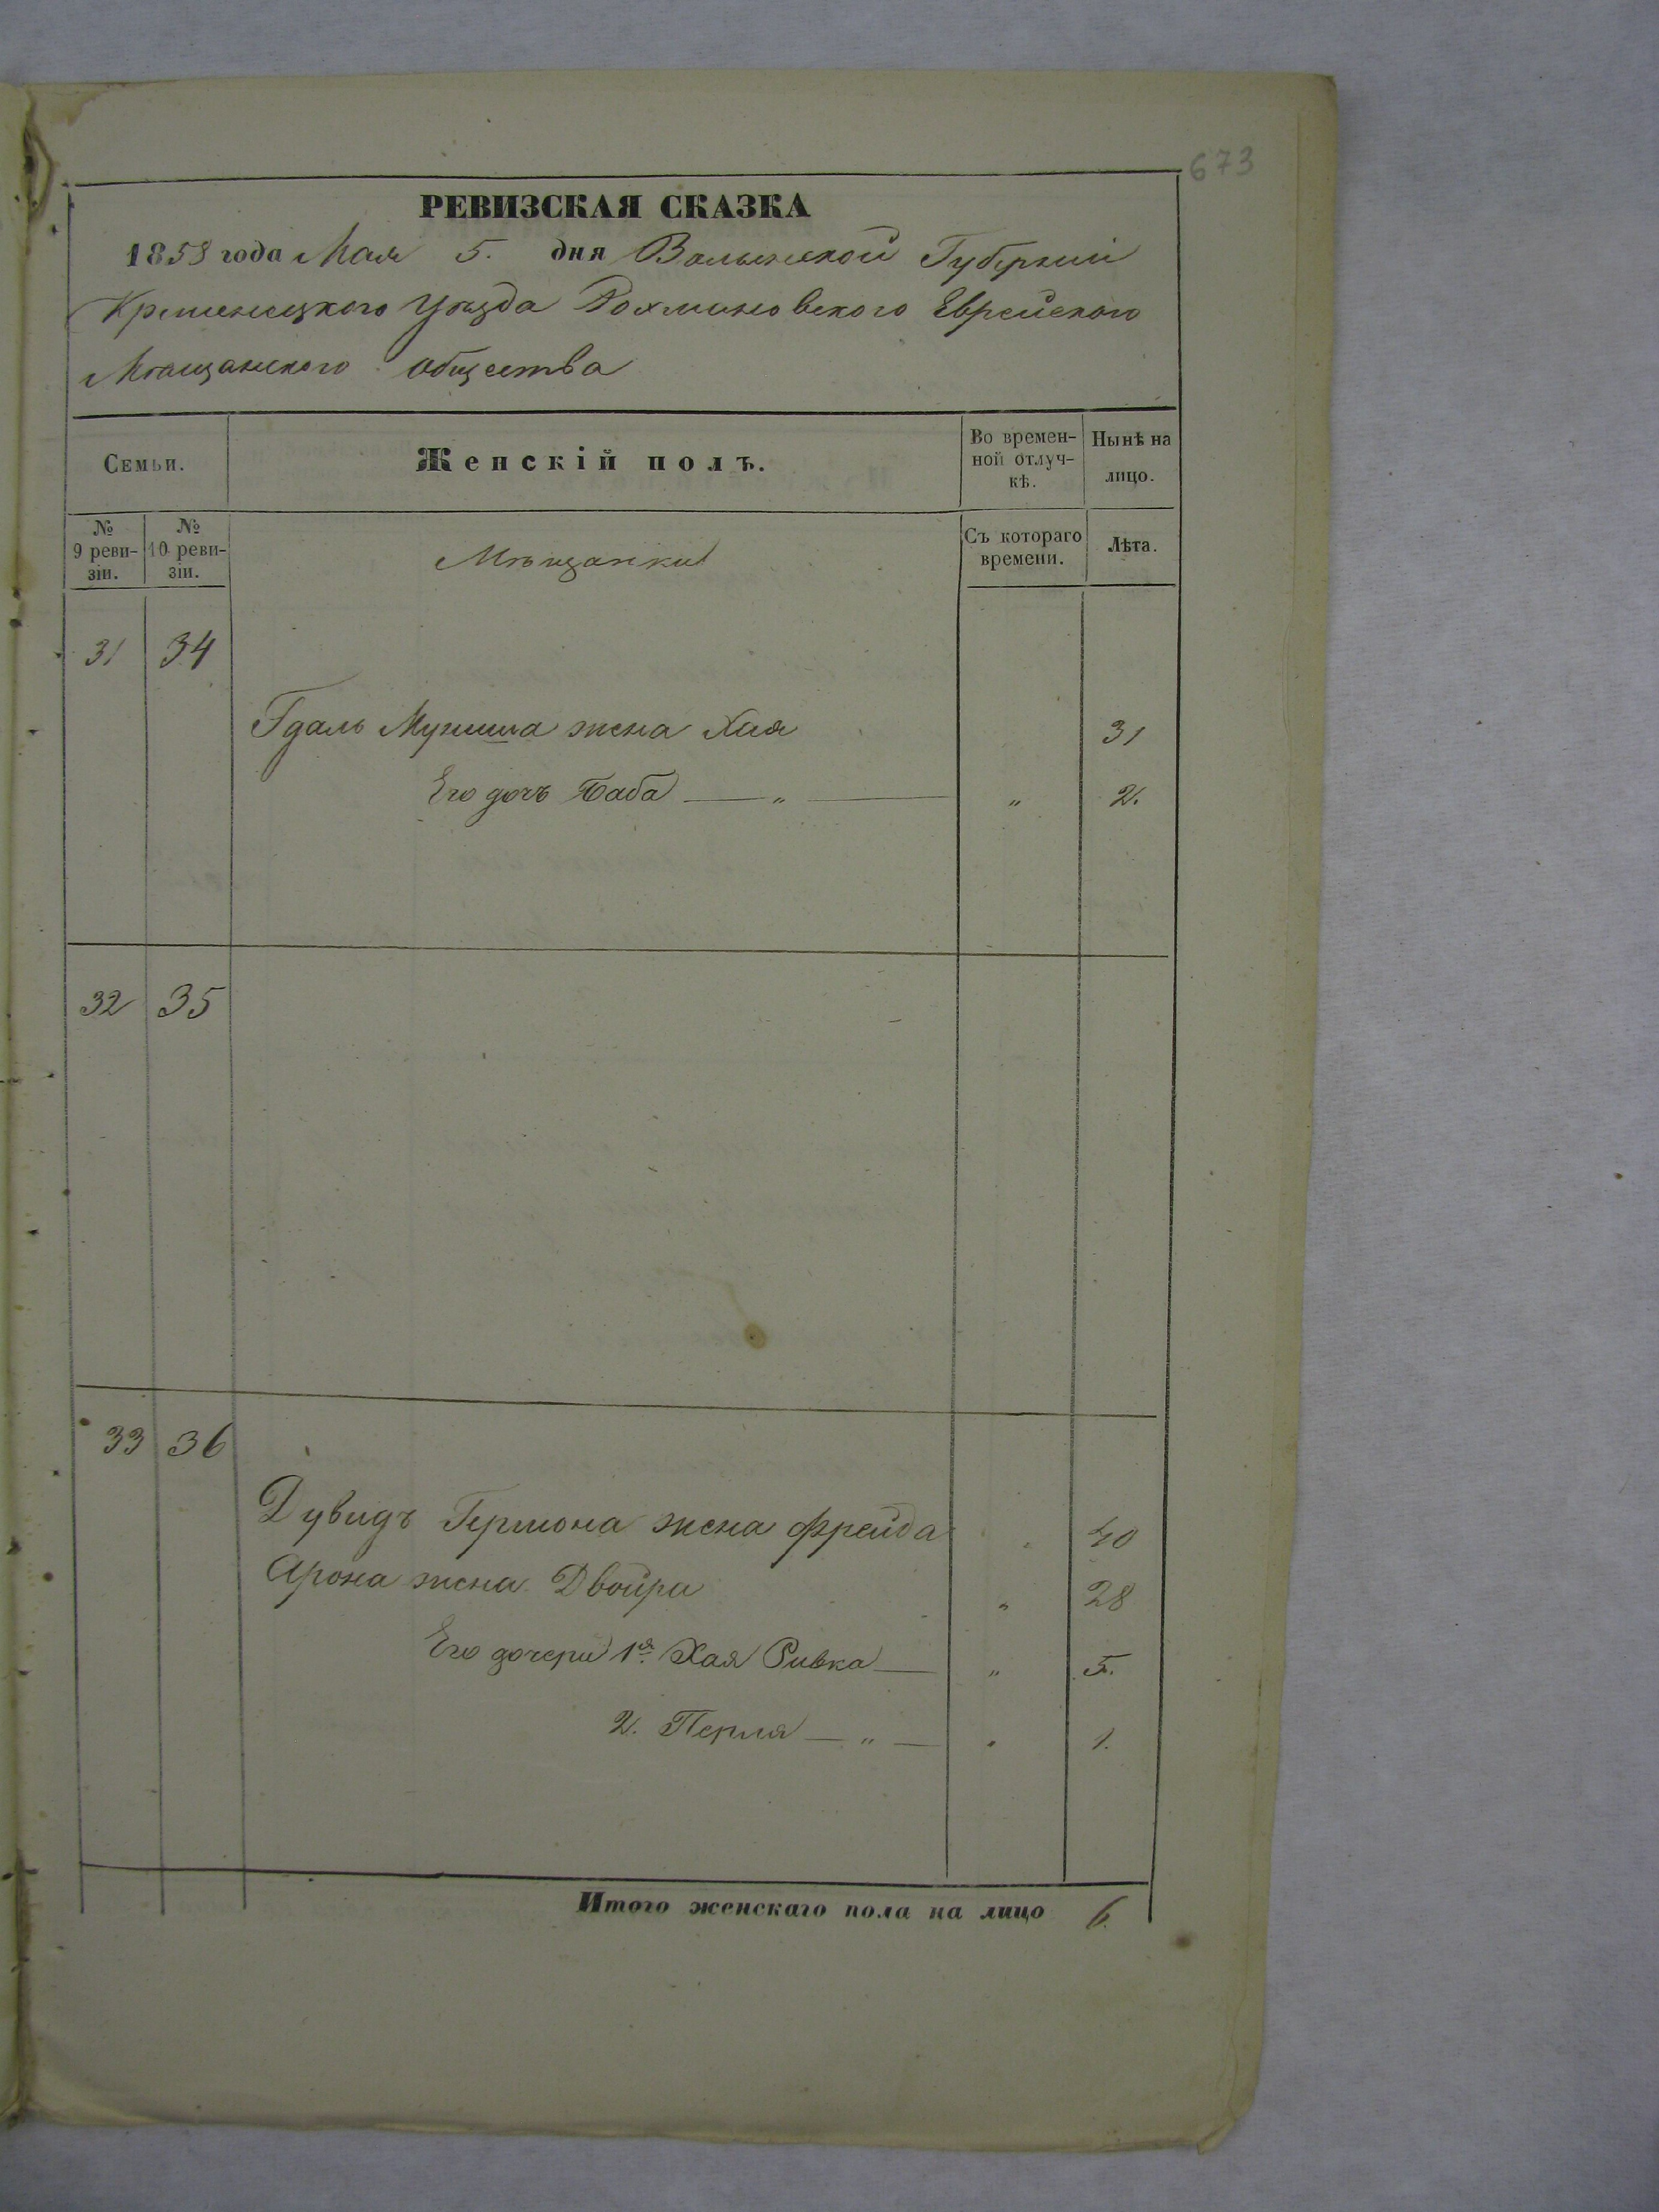 673
РЕВИЗСКАЯ СКАЗКА
1858 года Мая 5. дня Волынской Губерніи
Кременецкого Уѣзда Рохмановского Еврейского
Мѣщанского общества
Семьи.
Женскій полъ.
Во времен-
ной отлуч-
кѣ.
Нынѣ на
лицо.
№
9 реви-
зіи.
№
10 реви-
зіи.
Мѣщанки
Съ котораго
времени.
Лѣта.
31 34
Гдаль Муниша жена Хая 31
Его дочь Баба — „ — „ 2.
32 35
33 36
Дувидъ Гершона жена Фрейда „ 40
Арона жена Двойра „ 28
Его дочери 1я Хая Ривка — „ 5.
2. Перля — „ — „ 1.
Итого женскаго пола на лицо 6.